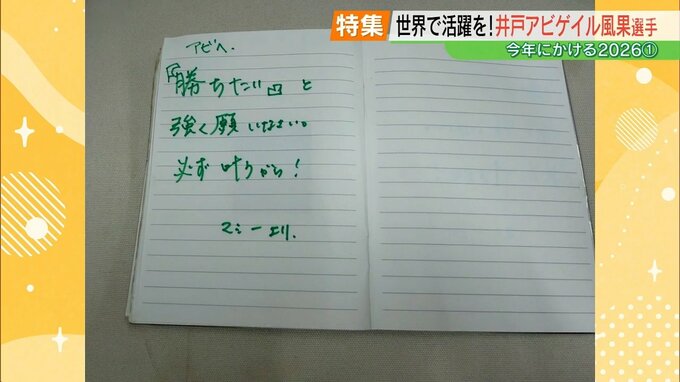 特集
世界で活躍を!井戸アビゲイル風果選手
今年にかける2026①
アビへ.
『勝ちたい』と
強く願いなさい。
必ず叶うから!
マミーより.